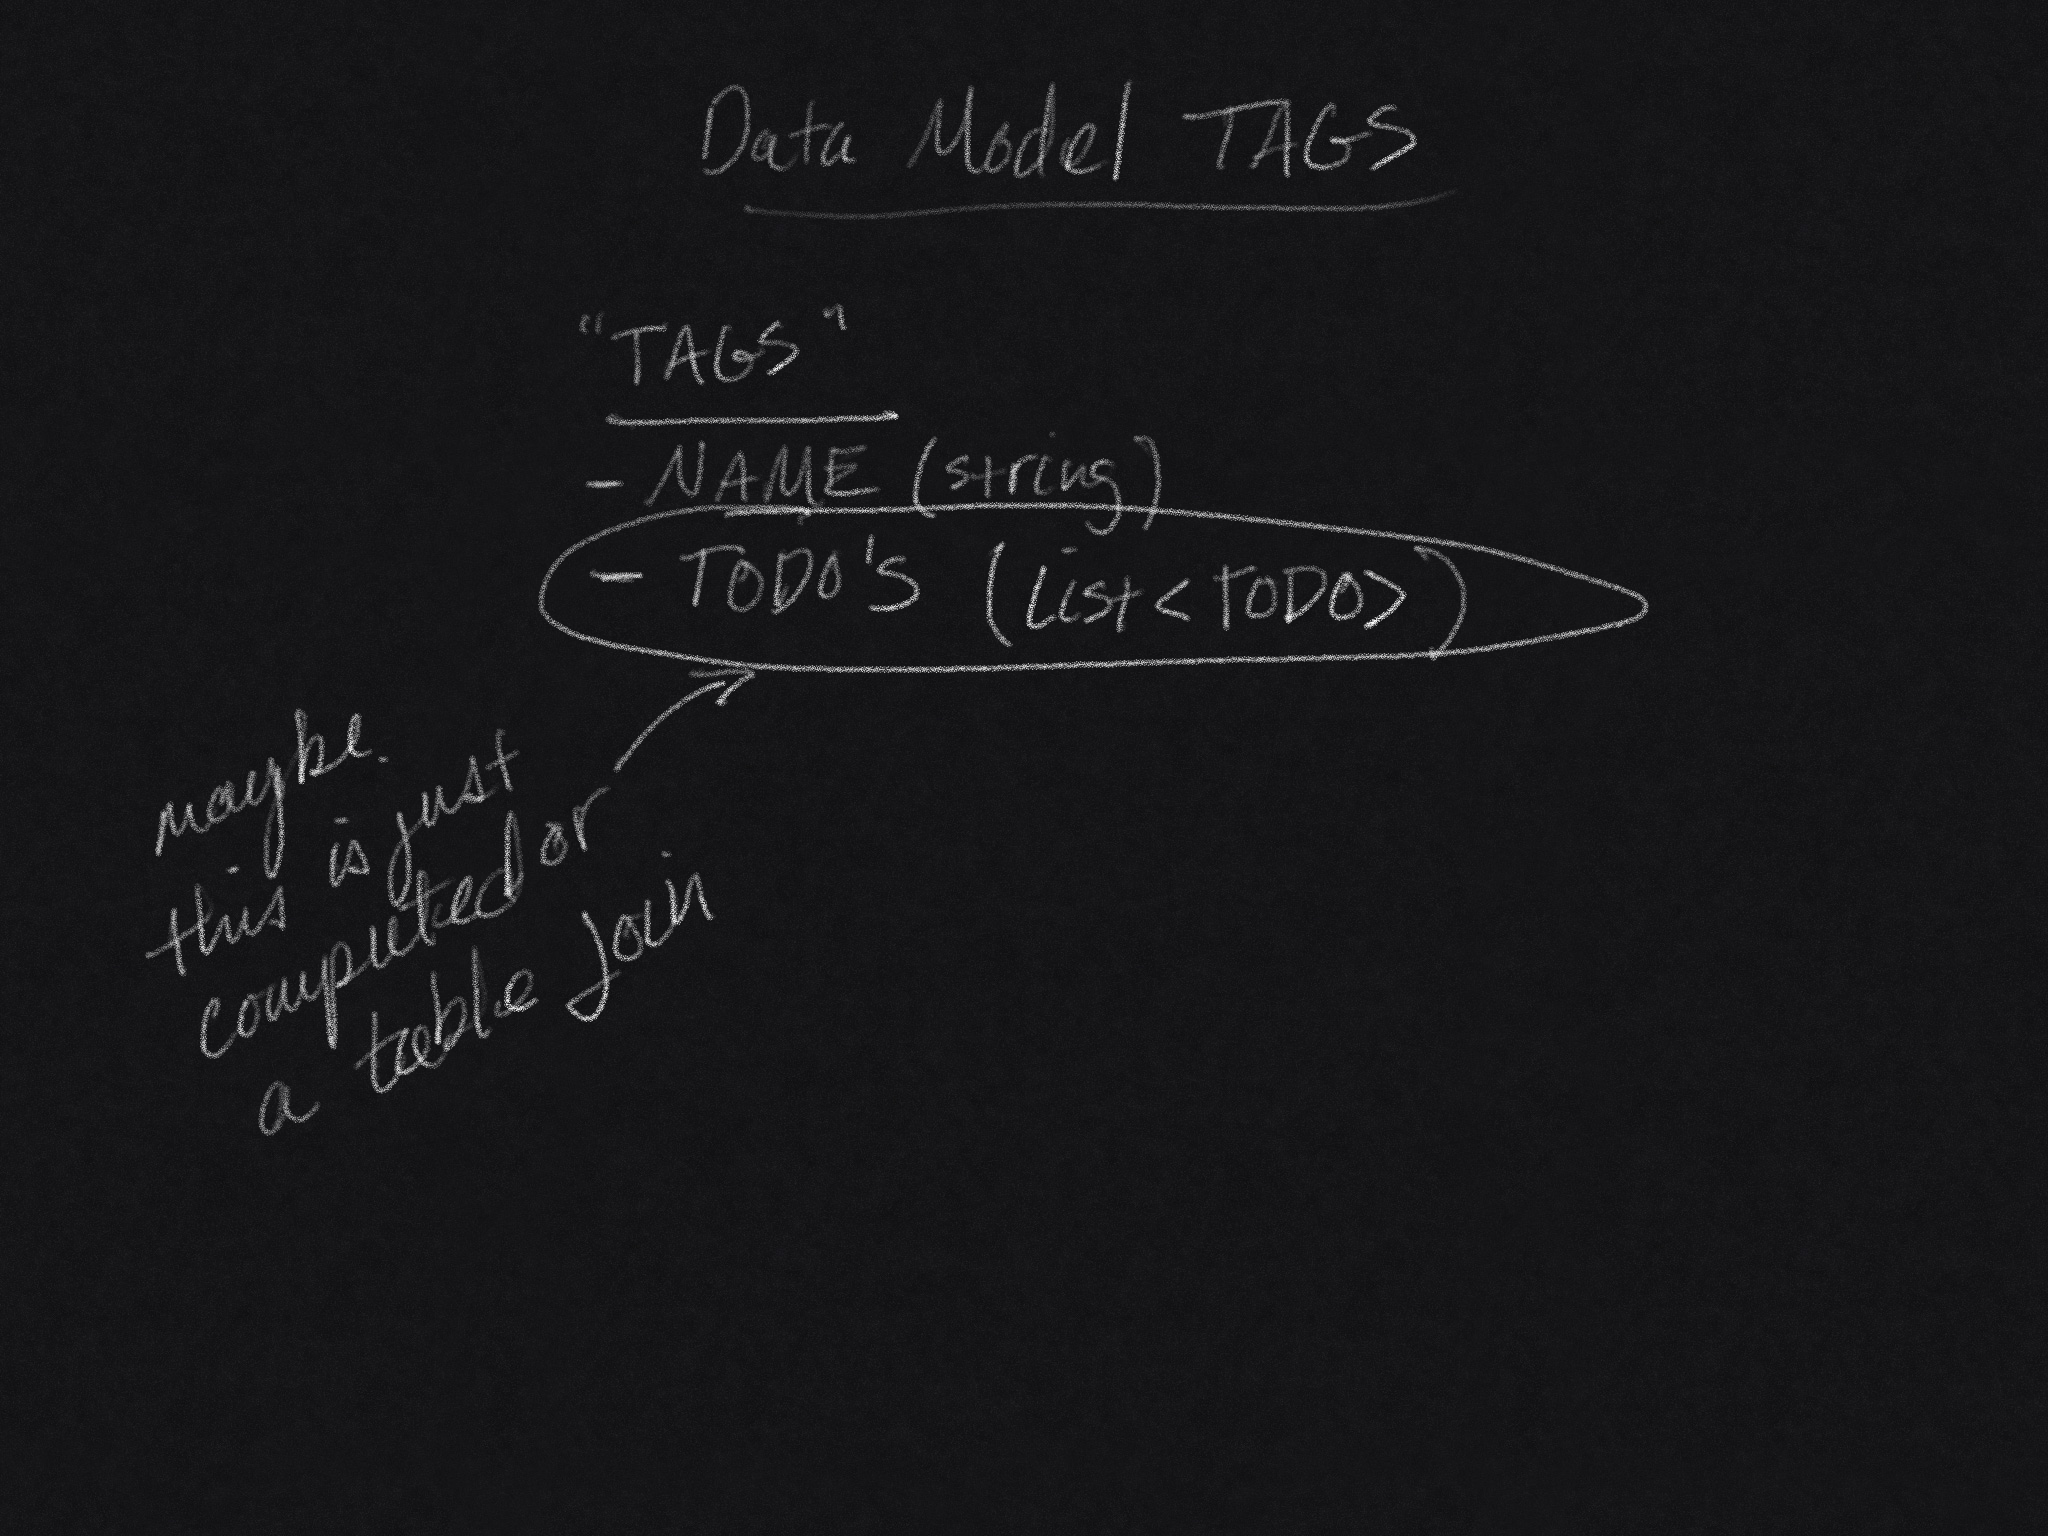 Data Model TAGS
"TAGS"
- NAME (string)
- TODO'S (List<TODO>)
maybe.
this is just
computed or
a table Join